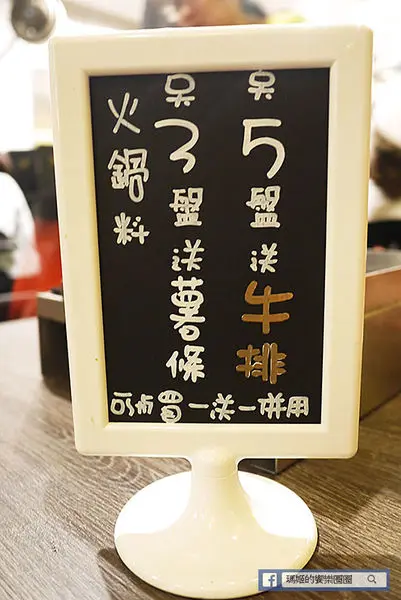 5盤送牛排
3盤送薯條
火鍋料
可与買一送一併用
瑪姬的饗樂圈圈